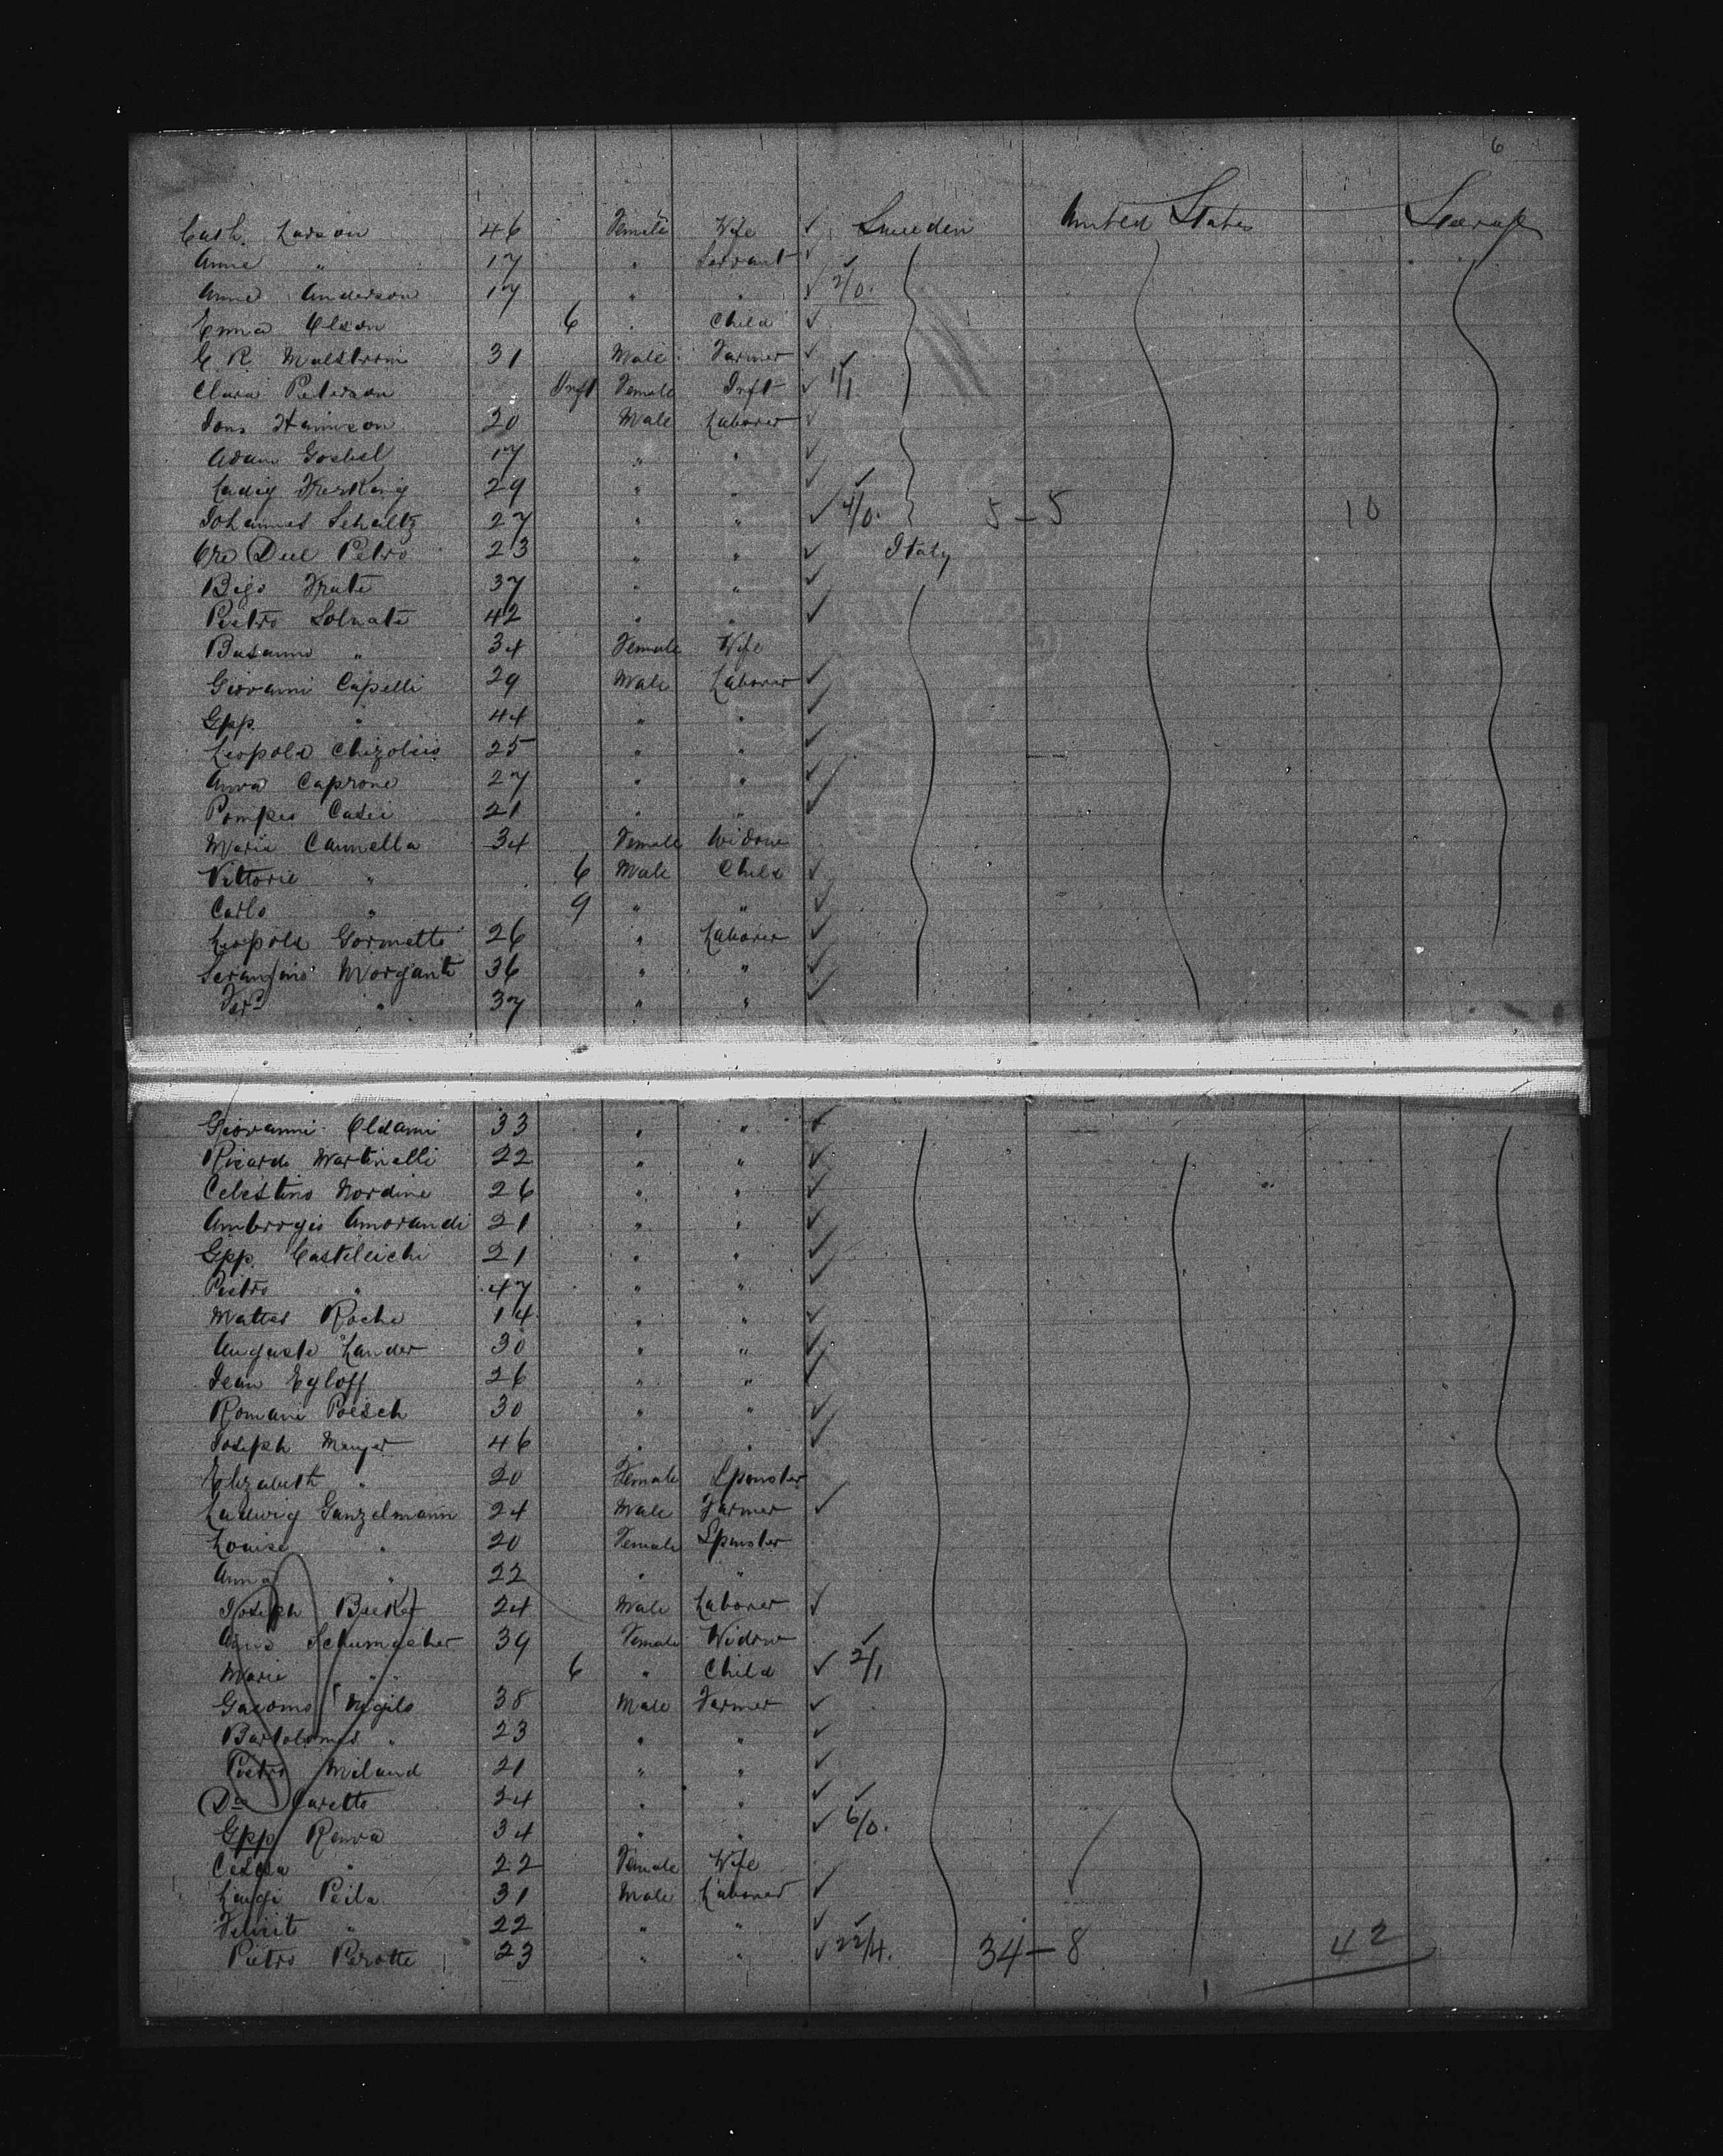 6
Cath. Larson 46 Female Wife ✓ Sweden United States Steerage
Anna " 17 " Servant ✓
Anna Anderson 17 " " ✓ 2/0.
Emma Olson 6 " Child ✓
C. R. Malstrom 31 Male Farmer ✓
Clara Peterson Inft Female Inft ✓ 1/1
Jons Hanson 20 Male Laborer ✓
Adam Goebel 17 " " ✓
Ludig 29 " " ✓
Johannes Schaltz 27 " " ✓ 4/0. 5 - 5 10
Petro 23 " " ✓ Italy
Frate 37 " " ✓
Pietro Solnate 42 " " ✓
" 34 Female Wife
Giovanni Capelli 29 Male Laborer ✓
Gpp. " 44 " " ✓
Leopold 25 " " ✓
Anna Caprone 27 " " ✓
Pompeo Casei 21 " " ✓
Maria Cannella 34 Female Widow
Vittorie " 6 Male Child ✓
Carlo " 9 " " ✓
Leopold Gormetti 26 " Laborer ✓
Morganti 36 " " ✓
" 37 " " ✓
Giovanni Oldami 33 " " ✓
Ricardo Martinelli 22 " " ✓
Celestino Nordine 26 " " ✓
Ambrogio Amorandi 21 " " ✓
Gpp. Casteleichi 21 " " ✓
Pietro " 47 " " ✓
Matteo Roche 14 " " ✓
Auguste Lander 30 " " ✓
Jean Egloff 26 " " ✓
Romani Poesch 30 " " ✓
Joseph Meyer 46 " " ✓
Elizabeth " 20 Female Spinster
Ludwig Ganzelmann 24 Male Farmer ✓
Louise " 20 Female Spinster
Anna " 22 " "
Joseph Becker 24 Male Laborer ✓
Anna Schumacher 39 Female Widow
Marie " 6 " Child ✓ 2/1
Giacomo Nigilo 38 Male Farmer ✓
Bartolomeo " 23 " " ✓
Pietro Miland 21 " " ✓
Do Caretto 24 " " ✓
Gpp Renva 34 " " ✓ 6/0.
" 22 Female Wife
Luigi Peila 31 Male Laborer ✓
" 22 " " ✓
Pietro Perotte 23 " " ✓ 22/4. 34 - 8 42